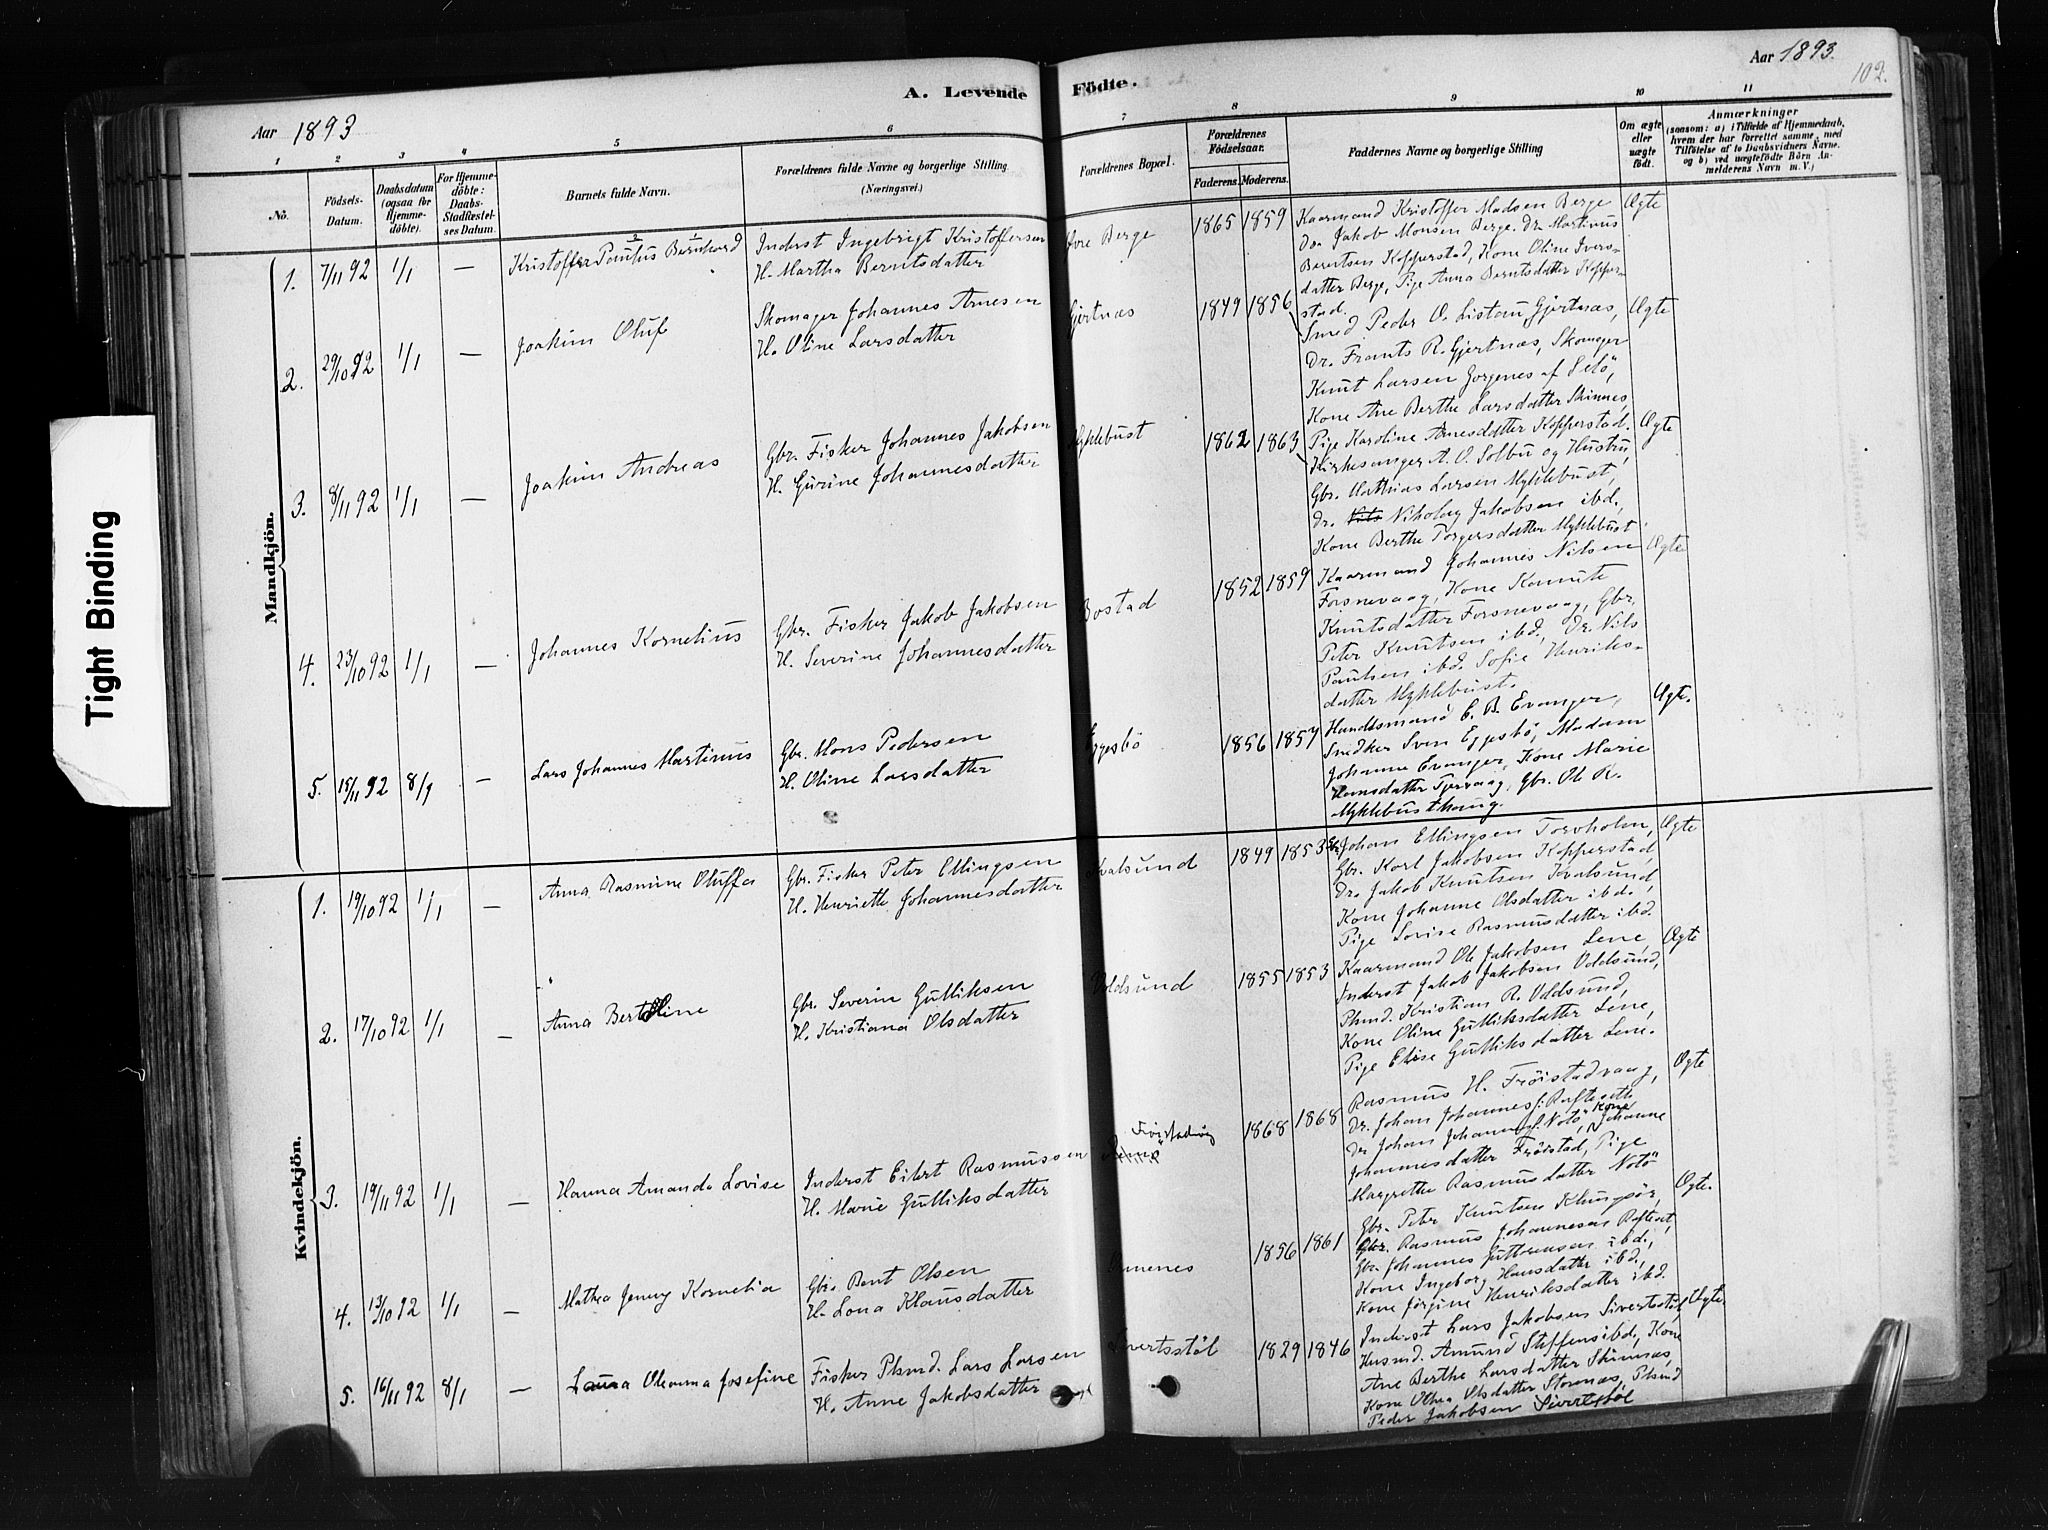 Tight Binding
Aar 1893
A. Levende Födte.
Aar 1893.
102.
1 2 3 4 5 6 7 8 9 10 11
No.
Födsels-Datum.
Daabsdatum (ogsaa for Hjemmedöbte).
For Hjemmedöbte: Daabs-Stadfæstelses Datum.
Barnets fulde Navn.
Forældrenes fulde Navne og borgerlige Stilling (Næringsvei.)
Forældrenes Bopæl.
Forældrenes Födselsaar.
Faderens. Moderens.
Faddernes Navne og borgerlige Stilling
Om ægte eller uægte födt.
Anmærkninger
(saasom: a) i Tilfælde af Hjemmedaab,
hvem der har forrettet samme, med
Tilföielse af to Daabsvidners Navne.
og b) ved uægtefödte Börn An-
melderens Navn m. V.)
Mandkjön.
1. 7/11 92 1/1 — Kristoffer Paulus Bernhard
Inderst Ingebrigt Kristoffersen
H. Martha Berntsdatter
Øvre Berge 1865 1859
Kaarmand Kristoffer Madsen Berge
Do. Jakob Monsen Berge. Dr. Martinus
Berntsen Kopperstad, Kone Oline Ivers-
datter Berge, Pige Anna Berntsdatter Kopper-
stad.
Ægte
2. 29/10 92 1/1 — Joakim Oluf
Skomager Johannes Arnesen
H. Oline Larsdatter
Gjertnæs 1849 1856
Smed Peder O. Listau Gjertnæs,
Dr. Frants R. Gjertnæs, Skomager
Knut Larsen Jorgenes af Selö,
Kone Ane Berthe Larsdatter Skinnes,
Pige Karoline Arnesdatter Kopperstad.
Ægte
3. 8/11 92 1/1 — Joakim Andreas
Gbr. Fisker Johannes Jakobsen
H. Gurine Johannesdatter
Myklebust 1862 1863
Kirkesanger A. O. Solbu og Hustru,
Gbr. Mathias Larsen Myklebust,
Dr. Nils Nikolay Jakobsen ibd,
Kone Berthe Torgersdatter Myklebust
Ægte
4. 23/10 92 1/1 — Johannes Kornelius
Gbr. Fisker Jakob Jakobsen
H. Severine Johannesdatter
Bostad 1852 1859
Kaarmand Johannes Nilsen
Forsnevaag, Kone Konnute
Knutsdatter Forsnevaag, Gbr.
Peter Knutsen ibd, Dr. Nils
Paulsen ibd. Sofie Henriks-
datter Myklebust.
Ægte
5. 15/11 92 8/1 — Lars Johannes Martinus
Gbr. Mons Pedersen
H. Oline Larsdatter
Eggesbö 1856 1857
Handlsmand E. B. Evanger,
Snedker Sven Eggesbö, Madam
Johanne Evanger, Kone Marie
Hansdatter Tjervaag, Gbr. Ole R.
Myklebusthaug.
Ægte.
Kvindekjön.
1. 19/10 92 1/1 — Anna Rasmine Oluffa
Gbr. Fisker Peter Ellingsen
H. Henriette Johannesdatter
Kvalsund 1849 1853
Gbr. Johan Ellingsen Torvholm,
Gbr. Karl Jakobsen Kopperstad,
Dr. Jakob Knutsen Kvalsund,
Kone Johanne Olsdatter ibd.,
Pige Lovise Rasmusdatter ibd.
Ægte
2. 17/10 92 1/1 — Anna Bertoline
Gbr. Severin Gulliksen
H. Kristiana Olsdatter
Voldsund 1855 1853
Kaarmand Ole Jakobsen Lene,
Inderst Jakob Jakobsen Voldsund,
Plsmd. Kristian R. Voldsund,
Kone Oline Gulliksdatter Lene,
Pige Elise Gulliksdatter Lene.
Ægte
3. 19/11 92 1/1 — Hanna Amanda Lovise
Inderst Eilert Rasmussen
H. Marie Gulliksdatter
Fröistadvåg 1868 1868
Rasmus H. Fröistadvaag,
Dr. Johan Johannes: Rafteseth
Dr Johan Johannes. Notö, Kone Johanne
Johannesdatter Fröistad, Pige
Margrethe Rasmusdatter Notö
Ægte
4. 13/10 92 1/1 — Mathea Jenny Kornelia
Gbr. Bent Olsen
H. Lona Klausdatter
1856 1861
Gbr. Peter Knutsen Klungsör,
Gbr. Rasmus Johannesen Rafteset,
Gbr. Johannes Guttormsen ibd.,
Kone Ingeborg Hansdatter ibd,
Kone Jörgine Henriksdatter ibd.
Ægte.
5. 16/11 92 8/1 — Laura Oleanna Josefine
Fisker Plsmd. Lars Larsen
H. Anne Jakobsdatter
Sivertsstöl 1829 1846
Inderst Lars Jakobsen Sivertsstöl,
Husmd. Amund Steffens ibd, Kone
Ane Berthe Larsdatter Skinnes,
Kone Othea Olsdatter Storenæs, Plsmd
Peder Jakobsen Sivertsstöl
Ægte.